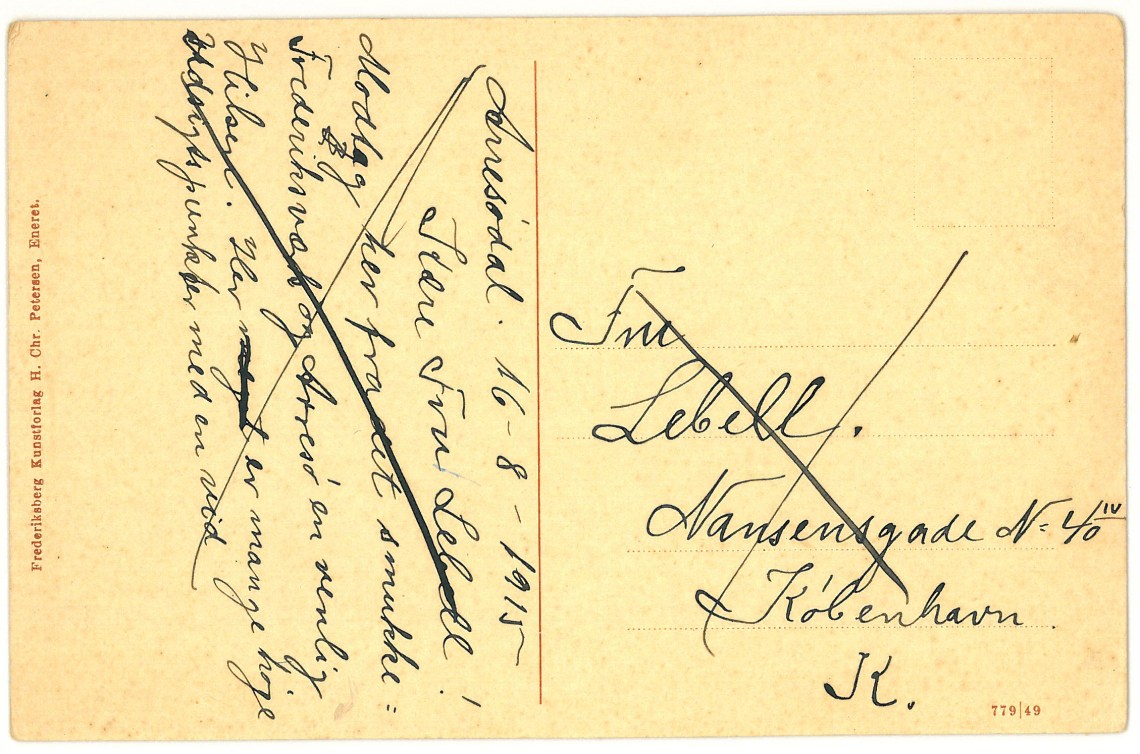 Arresödal. 16-8-1915
Kære Fru Lebell!
Modtag her fra det smukke =
Frederiksværk og Arresö en venlig
Hilsen. Her meget er mange høje
Udsigtspunkter med en vid
Fru
Lebell.
Nansensgade N= 40 IV
København.
K.
Frederiksberg Kunstforlag H. Chr. Petersen, Eneret.
779|49